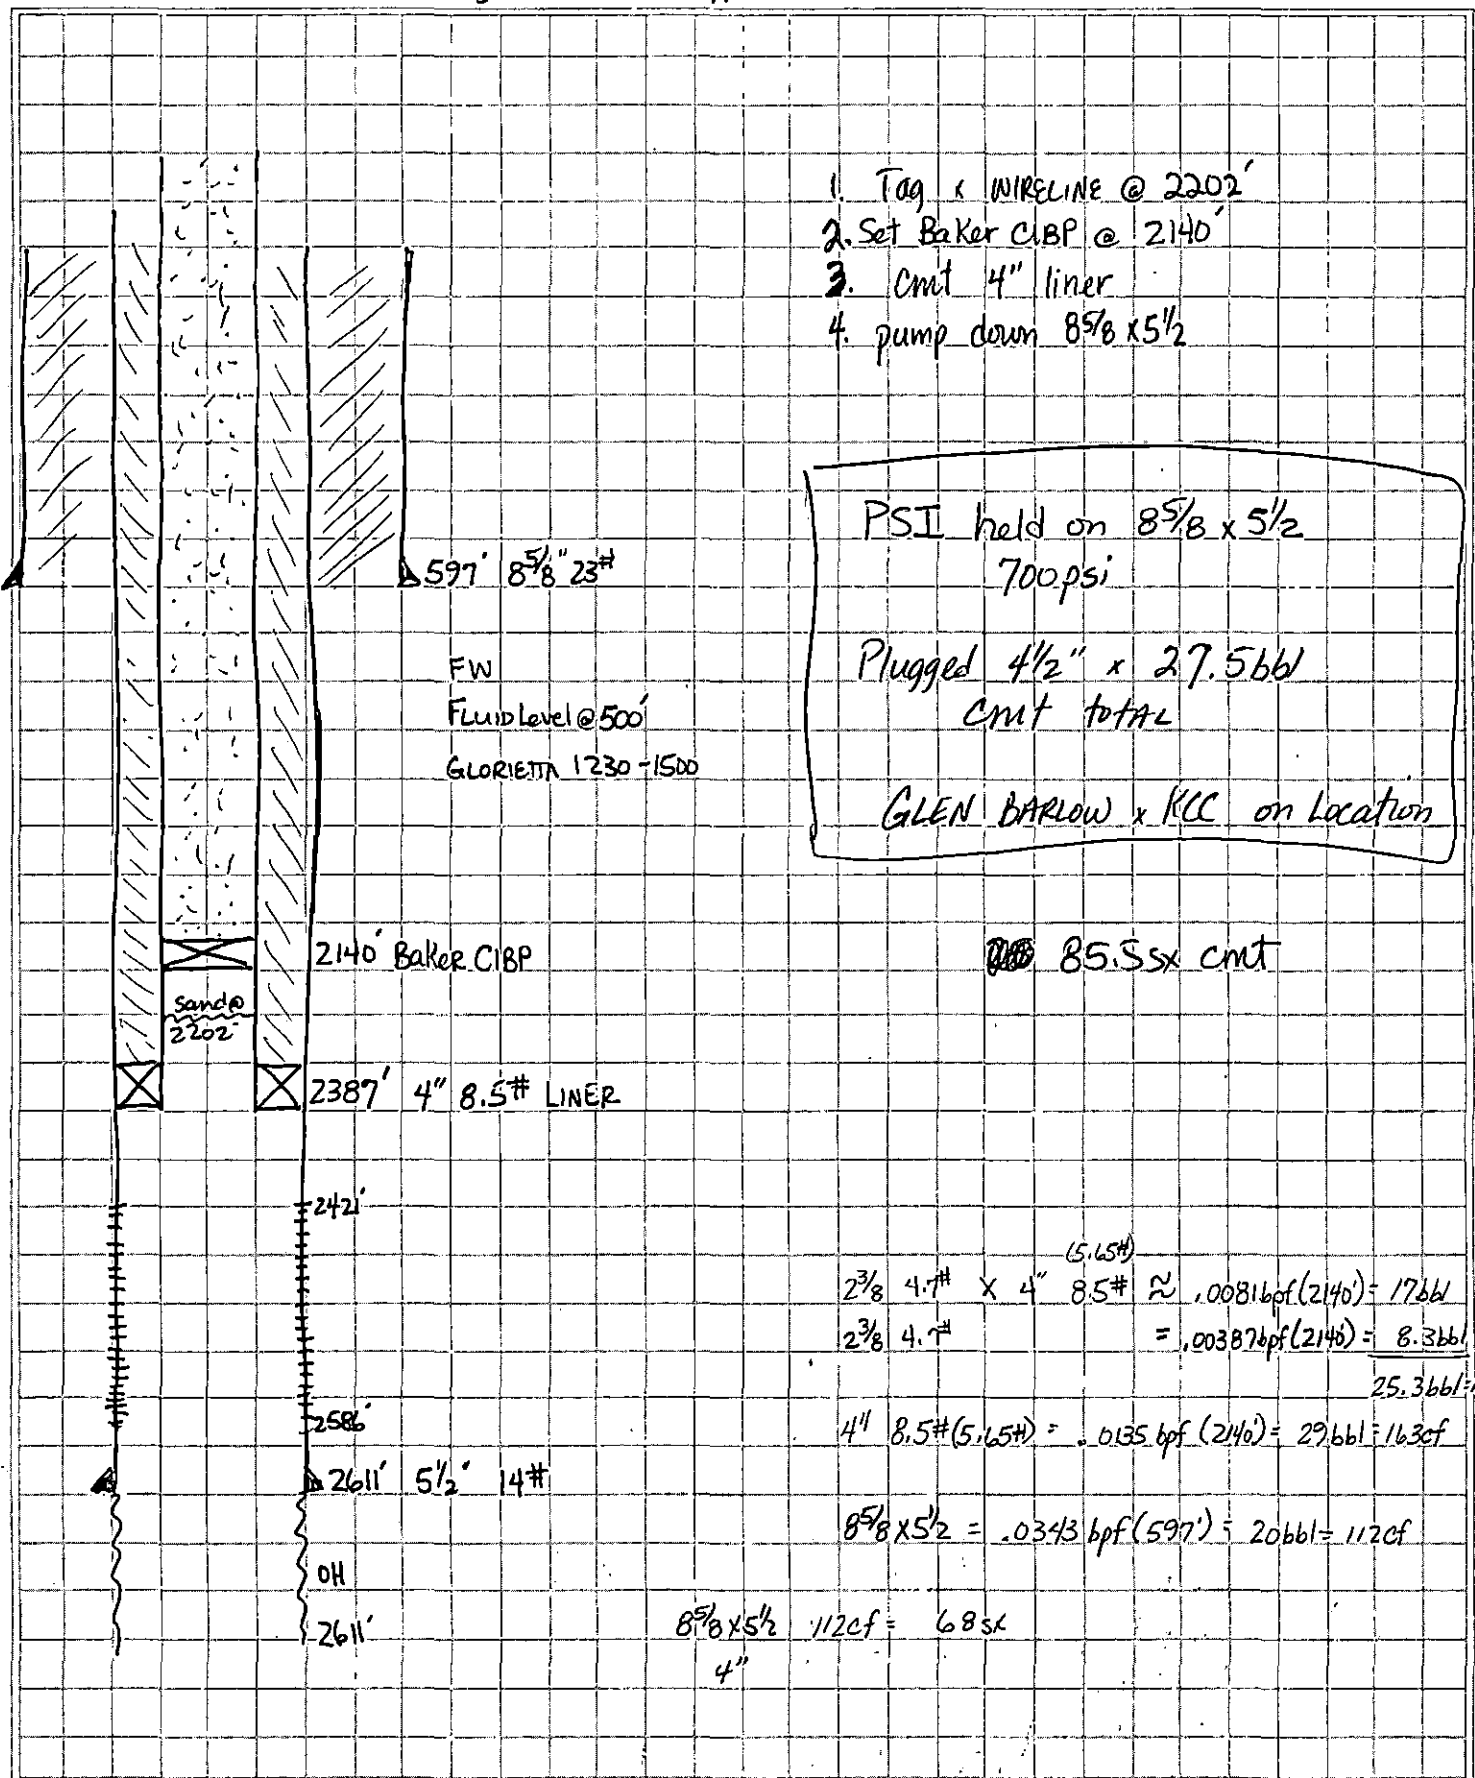 1. Tag x WIRELINE @ 2202'
2. Set Baker CIBP @ 2140'
3. Cmt 4" liner
4. pump down 8 5/8 x 5 1/2
PSI held on 8 5/8 x 5 1/2
700 psi
Plugged 4 1/2" x 27.5 bbl
Cmt total
GLEN BARLOW x KCC on Location
597' 8 5/8" 23#
FW
FLUID Level @ 500'
GLORIETTA 1230-1500
2140' Baker CIBP
85.5 sx cmt
sand @
2202'
2387' 4" 8.5# LINER
2421'
(5.65#)
2 3/8 4.7# X 4" 8.5# ≈ .0081 bpf (2140') = 17 bbl
2 3/8 4.7# = .00387 bpf (2140') = 8.3 bbl
25.3 bbl =
2586'
4" 8.5# (5.65#) = .0135 bpf (2140') = 29 bbl = 163 cf
2611' 5 1/2" 14#
8 5/8 X 5 1/2 = .0343 bpf (597') = 20 bbl = 112 cf
OH
2611'
8 5/8 X 5 1/2 112 cf = 68 sx
4"